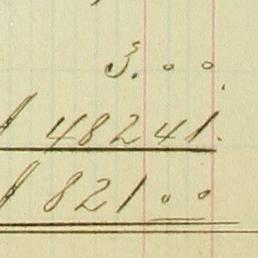 3. 00.
$ 482 41.
$ 821 00